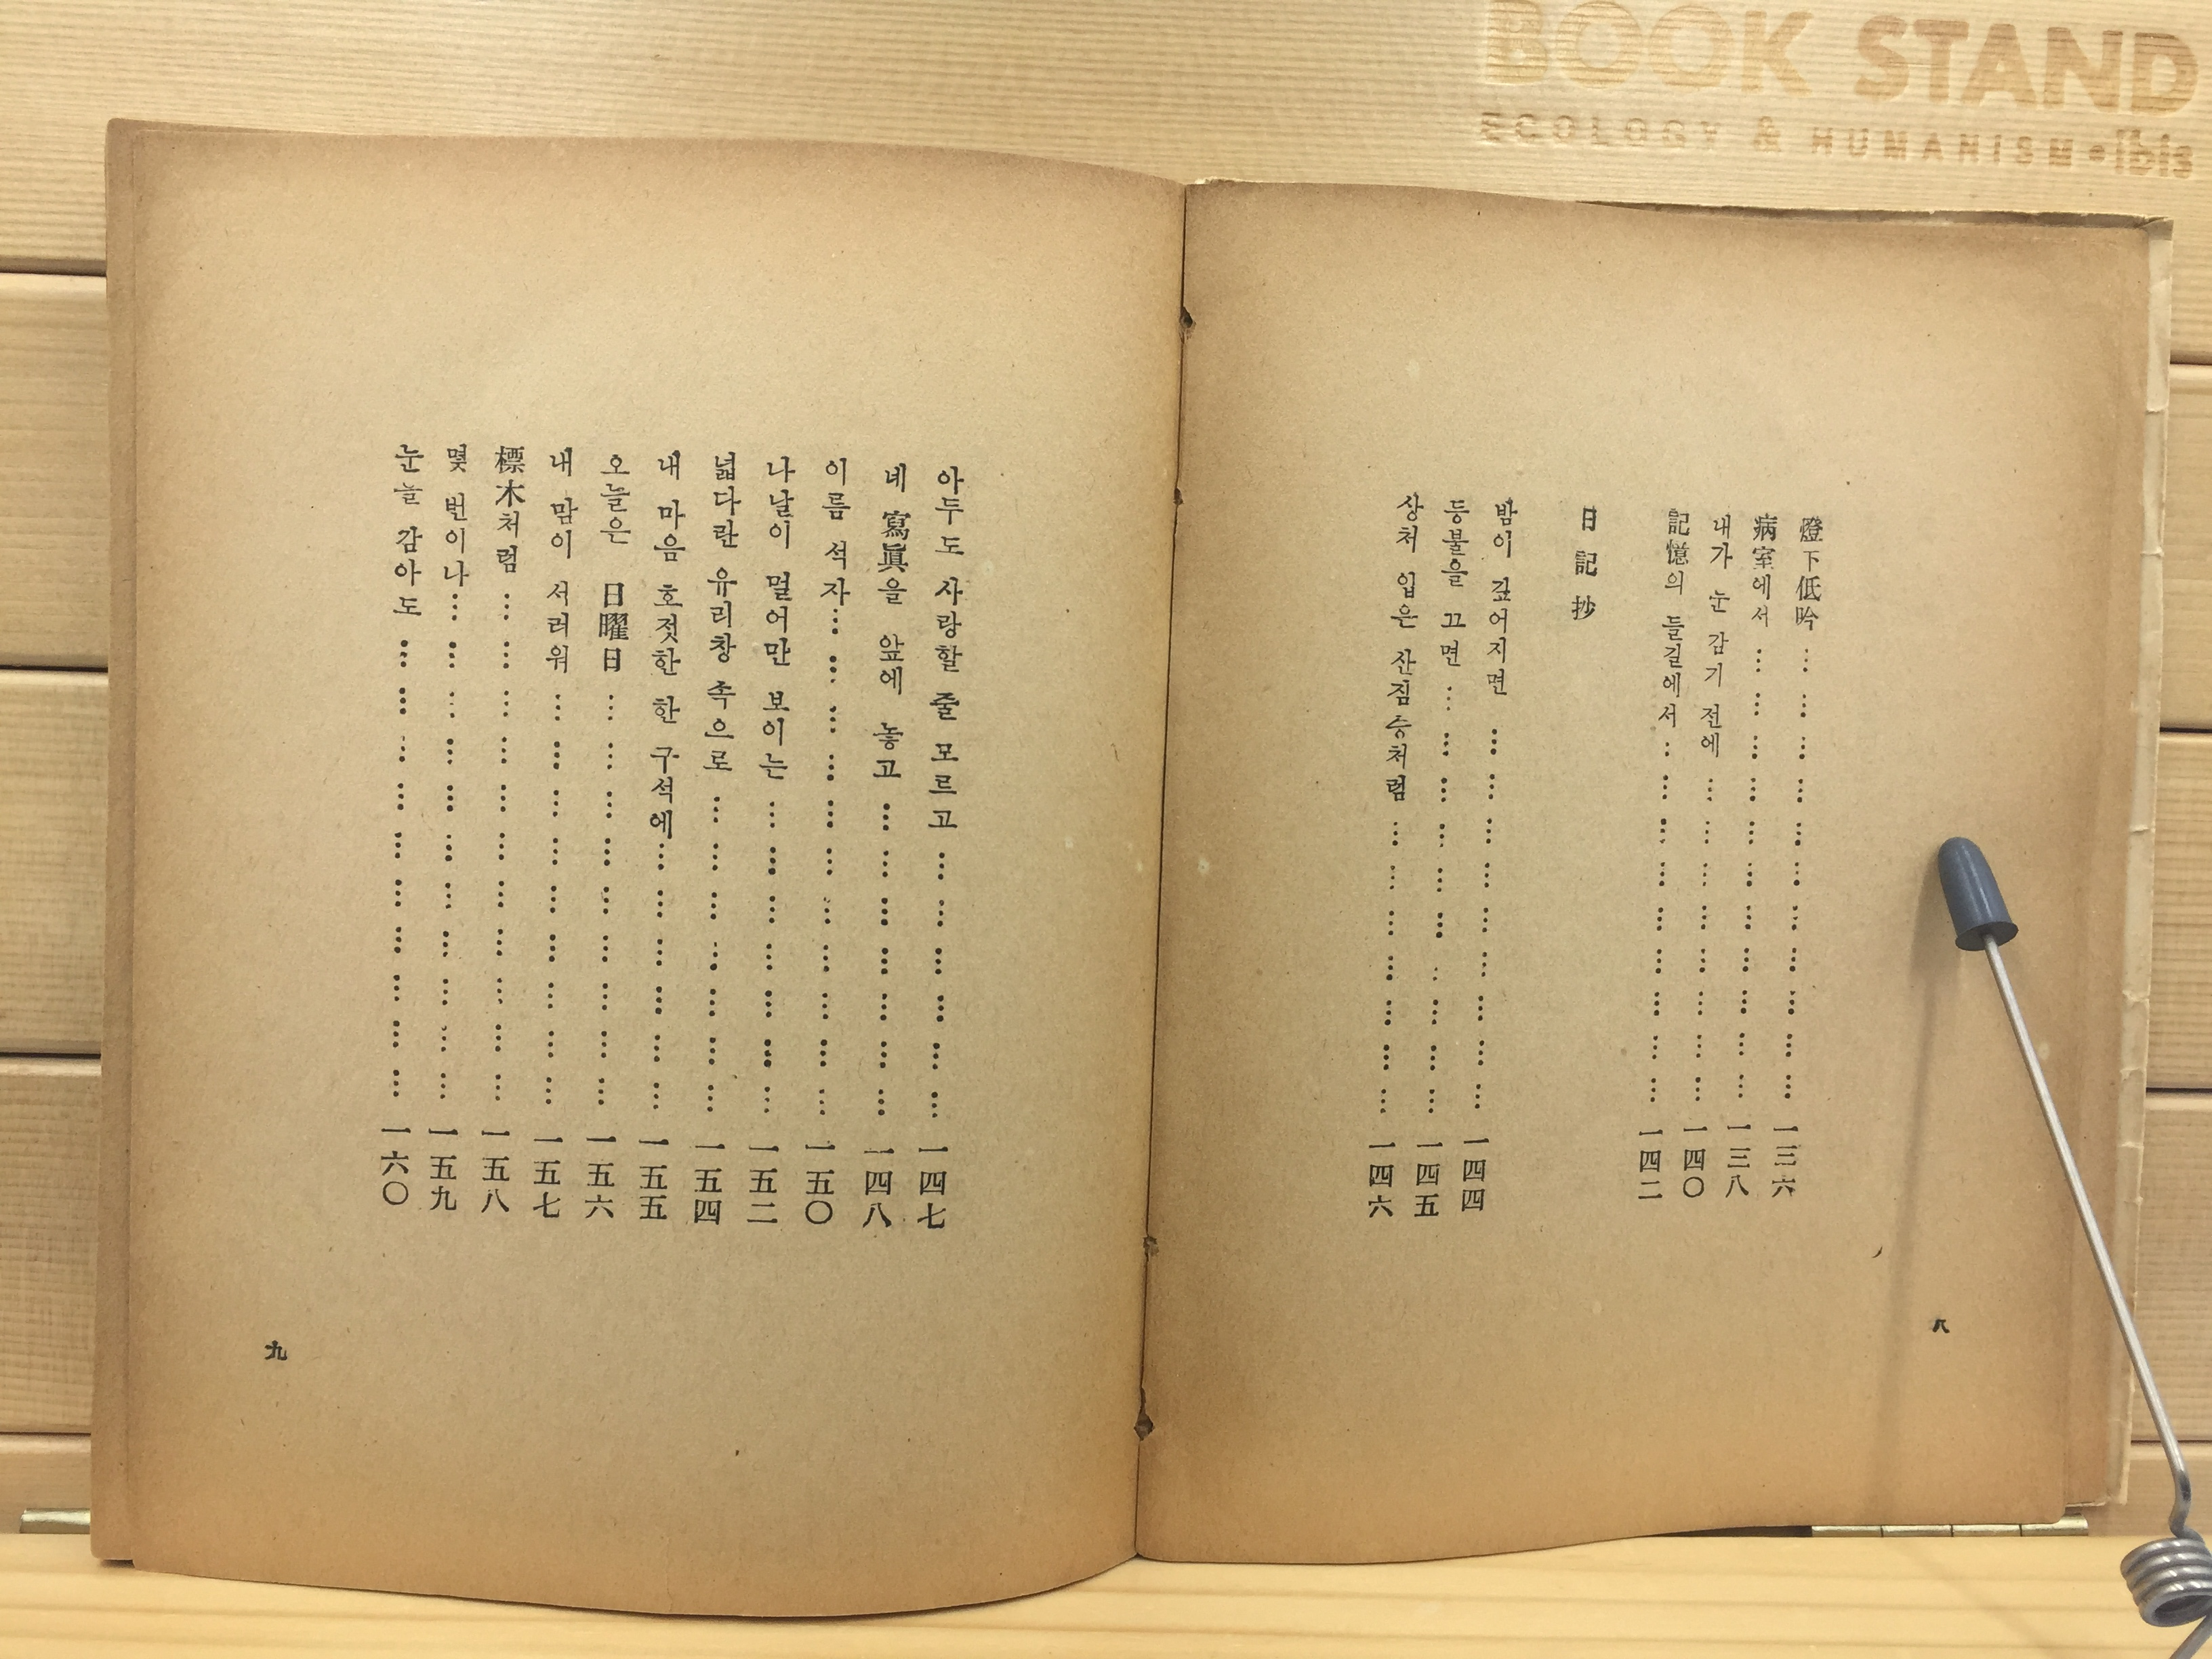 BOOK STAND
ECOLOGY & HUMANISM•ibis
燈下低吟 … … … … … … … … … … 一三六
病室에서 … … … … … … … … … … 一三八
내가 눈 감기 전에 … … … … … … … … 一四〇
記憶의 들길에서 … … … … … … … … … 一四二
日記抄
밤이 깊어지면 … … … … … … … … … 一四四
등불을 끄면 … … … … … … … … … … 一四五
상처 입은 산짐승처럼 … … … … … … … 一四六
八
아두도 사랑할 줄 모르고 … … … … … … 一四七
네 寫眞을 앞에 놓고 … … … … … … … 一四八
이름 석자 … … … … … … … … … … … 一五〇
나날이 멀어만 보이는 … … … … … … … 一五二
넓다란 유리창 속으로 … … … … … … … 一五四
내 마음 호젓한 한 구석에 … … … … … … 一五五
오늘은 日曜日 … … … … … … … … … 一五六
내 맘이 서러워 … … … … … … … … … 一五七
標木처럼 … … … … … … … … … … … 一五八
몇 번이나 … … … … … … … … … … … 一五九
눈늘 감아도 … … … … … … … … … … 一六〇
九